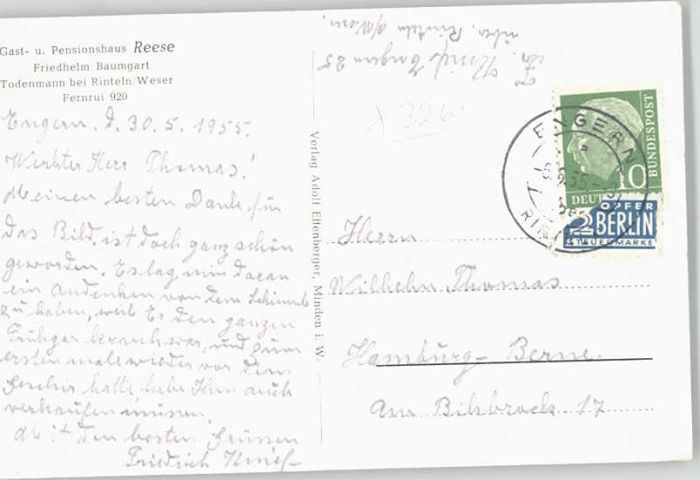 Gast- u. Pensionshaus Reese
Friedhelm Baumgart
Todenmann bei Rinteln/Weser
Fernruf 920
Engern. d. 30.5.1955.
Werther Herr Thomas!
Meinen besten Dank für
das Bild, ist doch ganz schön
geworden. Es lag mir daran
ein Andenken von dem Schimmel
zu haben, weil Er den ganzen
Frühjar krank war, und zum
ersten male wieder vor dem
hatte, habe Ihm auch
verkaufen müssen.
Mit den besten Grüssen
Friedrich
Verlag Adolf Effenberger, Minden i. W.
Engern 25
über. Rinteln a/Weser.
DEUTSCHE BUNDESPOST
10
ENGERN
RINTELN
NOTOPFER
2 BERLIN
STEUERMARKE
Herrn
Wilhelm Thomas
Hamburg- Berne.
Am Bilsbrock 17